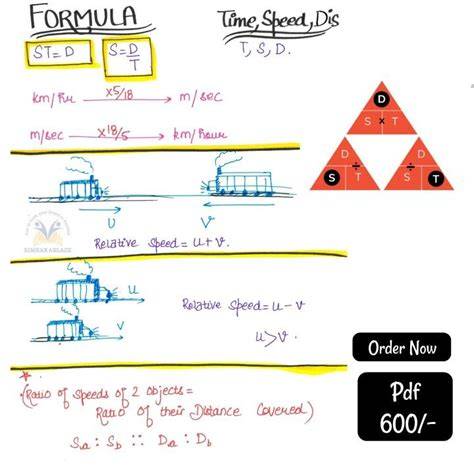 FORMULA
Time, Speed, Dis
T, S, D.
ST = D
S = D/T
km/hr ×5/18 → m/sec
m/sec ×18/5 → km/hour
D
S × T
D
÷
S T
D
÷
S T
U
V
Relative Speed = U + V.
U
V
Relative Speed = U - V
U > V.
Order Now
Pdf
600/-
* (Ratio of Speeds of 2 objects =
Ratio of their Distance Covered)
Sa : Sb :: Da : Db